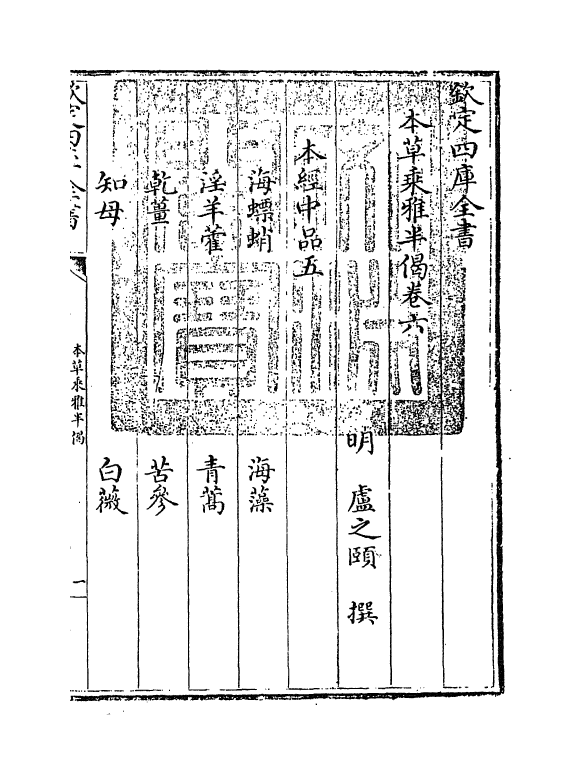 欽定四庫全書
本草乘雅半偈卷六
明 盧之頤 撰
本經中品五
海螵蛸 海藻
淫羊藿 青蒿
乾薑 苦參
知母 白薇
欽定四庫全書
本草乘雅半偈
一